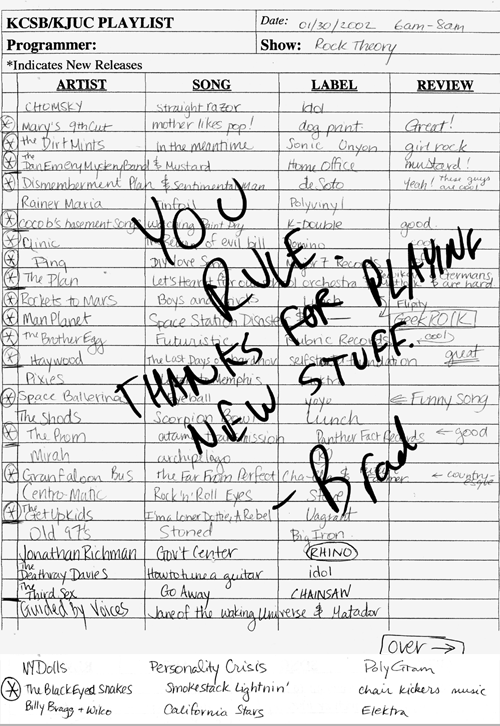 KCSB/KJUC PLAYLIST Date: 01/30/2002 6am-8am
Programmer: Show: Rock Theory
*Indicates New Releases
ARTIST SONG LABEL REVIEW
CHOMSKY straight razor idol
* Mary's 9th Cut mother likes pop! dog print Great!
* the Dirt Mints in the meantime Sonic Unyon girl rock
* The Dan Emery Mystery Band & Mustard Home Office mustard!
* Dismemberment Plan & Sentimental man deSoto Yeah! These guys are cool
Rainer Maria tinfoil Polyvinyl
* cocob's basement Songs K-Double good
* Clinic of evil bill
* Ping Diy Love
* The Plan Let's Hear orchestra are hard
* Rockets to Mars Boys and Flirty
* Man Planet Space Station Disaster GeekROCK
* The Brother Egg Futurist cool
* Haywood The Last Days of great
Pixies
* Space Ballerina yoyo ⇐ Funny song
The Shods Scorpion Bowl Lunch
* The Prom Panther Fact Records ← good
Mirah archipelago
* Granfaloon Bus The Far From Perfect ← country style
Centro-Matic Rock 'n' Roll Eyes
* The Get Up Kids I'm a Loner Dottie, A Rebel Vagrant
Old 97's Stoned Big Iron
Jonathan Richman Gov't Center RHINO
The Deathray Davies How to tune a guitar idol
The Third Sex Go Away CHAINSAW
Guided by Voices Jane of the waking Universe & Matador
YOU
RULE.
THANKS FOR PLAYING
NEW STUFF.
- Brad
over →
NY Dolls Personality Crisis PolyGram
* The Black Eyed Snakes Smokestack Lightnin' chair kickers music
Billy Bragg + Wilco California Stars Elektra